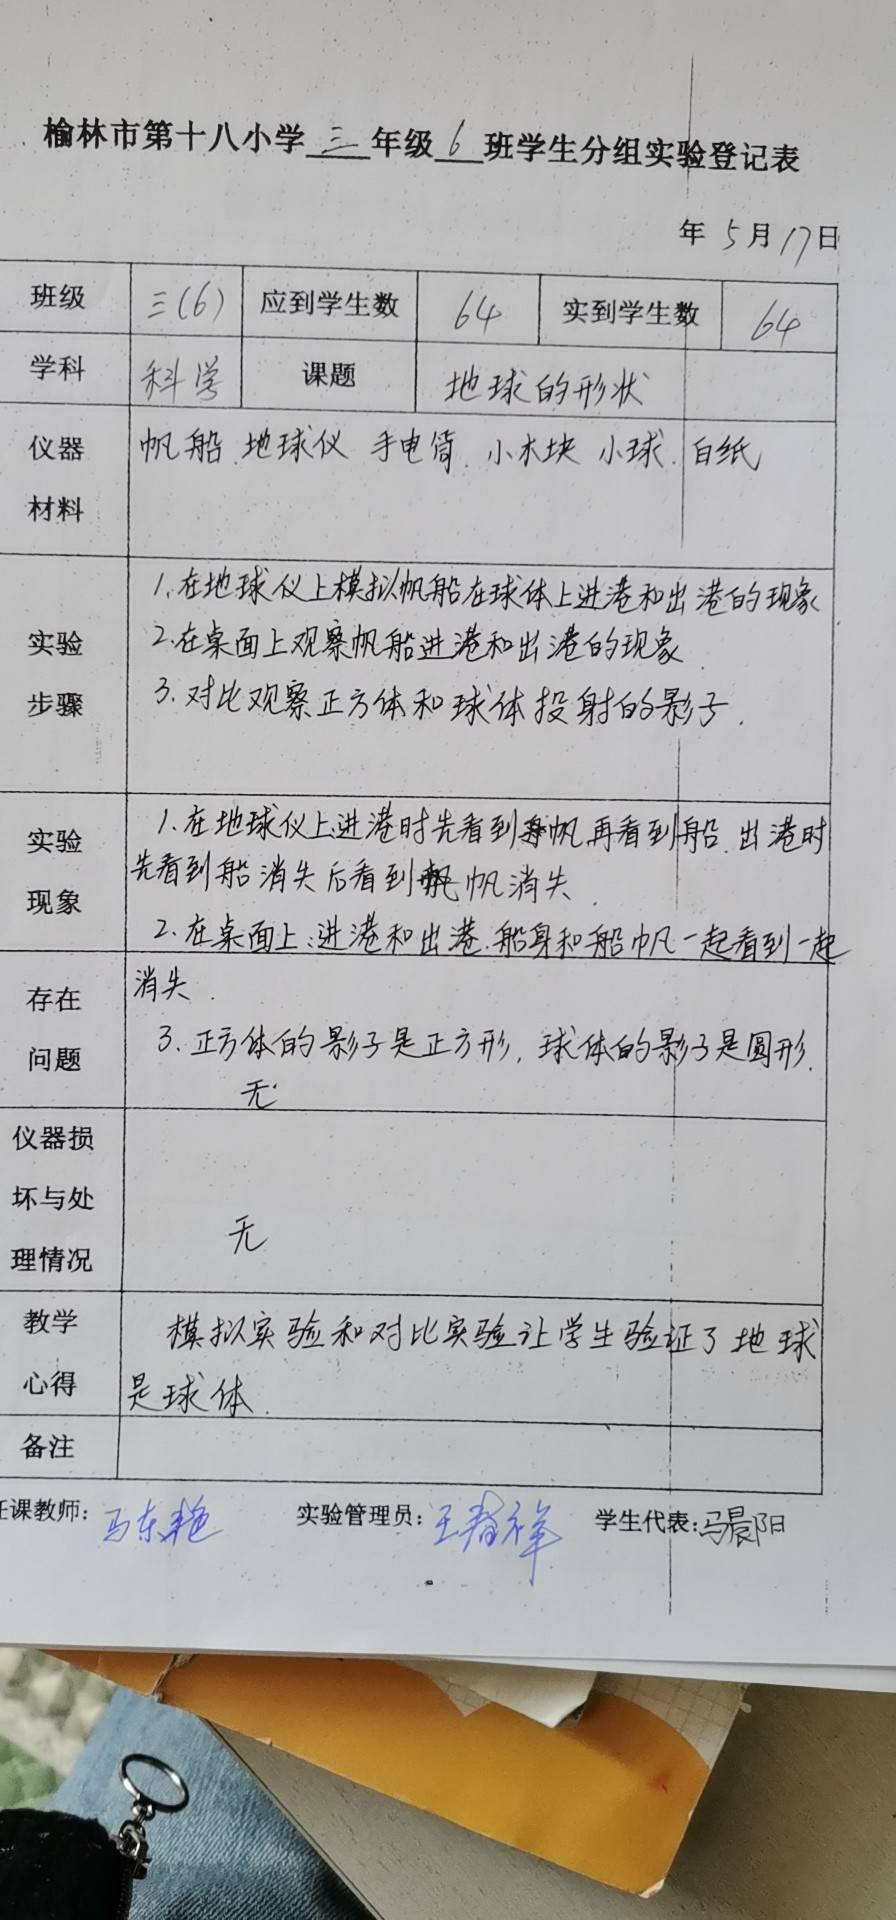 榆林市第十八小学三年级6班学生分组实验登记表
年5月17日
班级 三(6) 应到学生数 64 实到学生数 64
学科 科学 课题 地球的形状
仪器 帆船.地球仪 手电筒.小木块 小球.白纸
材料
1.在地球仪上模拟帆船在球体上进港和出港的现象
实验 2.在桌面上观察帆船进港和出港的现象.
步骤 3.对比观察正方体和球体投射的影子.
1.在地球仪上:进港时先看到帆,再看到船.出港时
实验 先看到船消失后看到帆消失.
现象
2.在桌面上:进港和出港.船身和船帆一起看到一起
存在 消失.
问题 3.正方体的影子是正方形,球体的影子是圆形.
无
仪器损
坏与处
理情况 无
教学 模拟实验和对比实验让学生验证了地球
心得 是球体.
备注
任课教师: 马东艳 实验管理员: 王春祥 学生代表:马晨阳